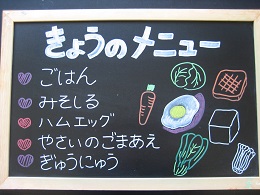 きょうのメニュー
ごはん
みそしる
ハムエッグ
やさいのごまあえ
ぎゅうにゅう